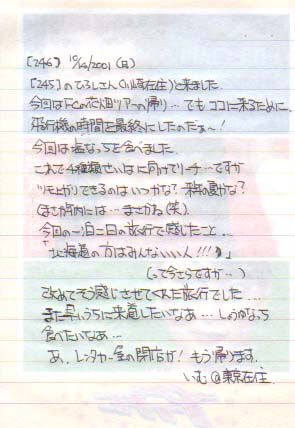 [246] 10/14/2001 (日)
[245]のひろしさん(川崎在住)と来ました.
今回はFCの花畑ツアーの帰り… でもココに来るために、
飛行機の時間を最終にしたのだぁ~!
今回は塩なっ5を食べました.
これで4種類せいはに向けてリーチ…ですが
ツモあがりできるのはいつかな? 来年の夏かな?
(まさか年内には… まさかね(笑).
今回の一泊二日の旅行で感じたこと…
「北海道の方はみんないい人!!!」
(って今さらですが…)
改めてそう感じさせてくれた旅行でした…
また早いうちに来道したいなぁ… しょうゆなっ5
食べたいなぁ…
あ、レンタカー屋の閉店が! もう帰ります.
いむ@東京在住.